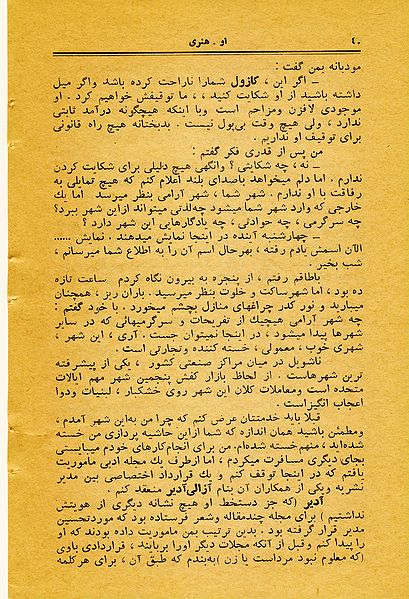 ۴۰
او ـ هنری
مودبانه بمن گفت :
ـ اگر این ، کازول شمارا ناراحت کرده باشد واگر میل
داشته باشید از او شکایت کنید ، ، ما توقیفش خواهیم کرد . او
موجودی لافزن ومزاحم است وبا اینکه هیچگونه درآمد ثابتی
ندارد ، ولی هیچ وقت بی‌پول نیست . بدبختانه هیچ راه قانونی
برای توقیف او نداریم .
من پس از قدری فکر گفتم :
ـ نه ، چه شکایتی ؟ وانگهی هیچ دلیلی برای شکایت کردن
ندارم . اما دلم میخواهد باصدای بلند اعلام کنم که هیچ تمایلی به
رفاقت با او ندارم . شهر شما ، شهر آرامی بنظر میرسد اما یك
خارجی که وارد شهر شما میشود چه‌لذتی میتواند ازاین شهر ببرد؟
چه سرگرمی ، چه حوادثی ، چه یادگارهایی این شهر دارد ؟
ـ چهارشنبه آینده در اینجا نمایش میدهند . نمایش ......
الان اسمش یادم رفته ، بهرحال اسم آن را به اطلاع شما میرسانم ،
شب بخیر .
باطاقم رفتم ، از پنجره به بیرون نگاه کردم ساعت تازه
ده بود ، اما شهرساکت و خلوت بنظر میرسید . باران ریز ، همچنان
میبارید و نور کدر چراغهای منازل بچشم میخورد . با خرد گفتم :
چه شهر آرامی هیچیك از تفریحات و سرگرمیهائی که در سایر
شهرها پیدا میشود ، در اینجا نمیتوان جست . آری ، این شهر ،
شهری خوب ، معمولی ، خسته کننده وتجارتی است .
ناشویل در میان مراکز صنعتی کشور ، یکی از پیشرفته
ترین شهرهاست . از لحاظ بازار کفش پنجمین شهر مهم ایالات
متحده است ومعاملات کلان این شهر روی خشکبار ، لبنیات ودوا
اعجاب انگیزاست .
قبلا باید خدمتتان عرض کنم که چرا من به‌این شهر آمدم ،
ومطمئن باشید همان اندازه که شما ازاین حاشیه پردازی من خسته
شده‌اید ، منهم‌خسته شده‌ام. من برای انجام‌کارهای خودم میبایستی
بجای دیگری مسافرت میکردم ، اما ازطرف یك مجله ادبی ماموریت
یافتم که در اینجا توقف کنم و یك قرارداد اختصاصی بین مدیر
نشریه ویکی از همکاران آن بنام آزالی‌آدیر منعقد کنم .
آدیر (که جز دستخط او هیچ نشانه دیگری از هویتش
نداشتیم ) برای مجله چندمقاله وشعر فرستاده بود که موردتحسین
مدیر قرار گرفته بود . بدین ترتیب بمن ماموریت داده بودند که او
را پیدا کنم وقبل از آنکه مجلات دیگر اورا بربایند ، قراردادی باوی
(که معلوم نبود مرداست یا زن )به‌بندم که طبق آن ، برای هرکلمه